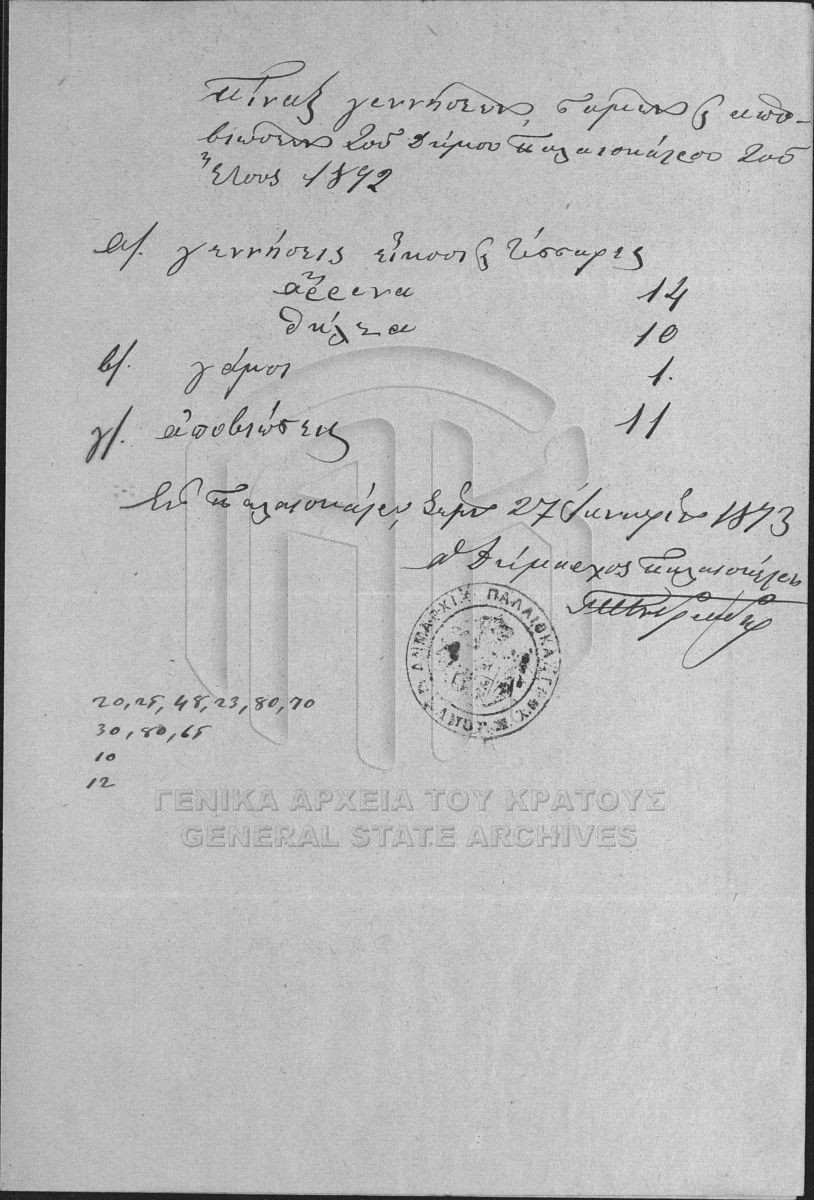 Πίναξ γεννήσεων, γάμων ϛ απο-
βιώσεων τοῦ Δήμου Παλαιοκάστρου τοῦ
Ἔτους 1892
α/. γεννήσεις εἴκοσι ϛ τέσσαρες
ἄρρενα 14
θήλεα 10
β/. γάμοι 1.
γ/. ἀποβιώσεις 11
Ἐν Παλαιοκάστρῳ Σάμου 27 Ἰανουαρίου 1893
ὁ Δήμαρχος Παλαιοκάστρου
ΔΗΜΑΡΧΙΑ ΠΑΛΑΙΟΚΑΣΤΡΟΥ
20, 25, 45, 23, 80, 70
30, 80, 65
10
12
ΓΕΝΙΚΑ ΑΡΧΕΙΑ ΤΟΥ ΚΡΑΤΟΥΣ
GENERAL STATE ARCHIVES